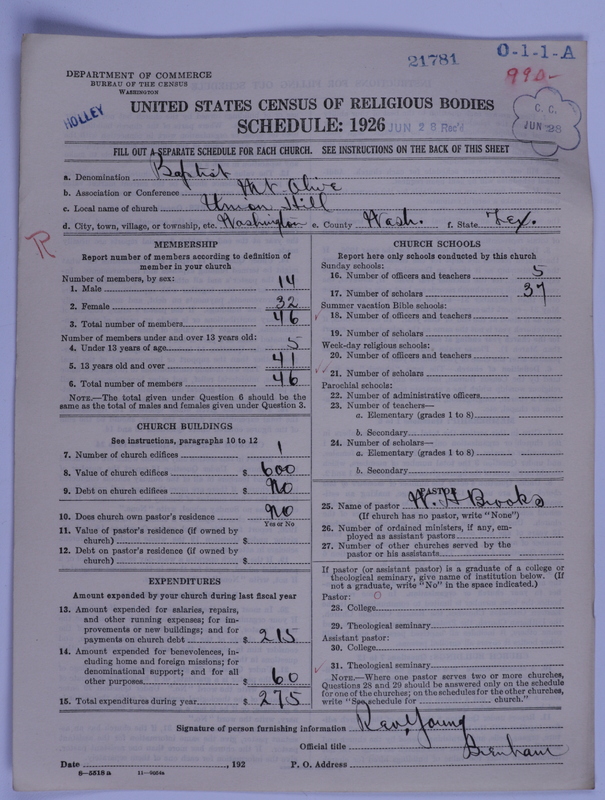 21781 O-1-1-A
990-
DEPARTMENT OF COMMERCE
BUREAU OF THE CENSUS
WASHINGTON
HOLLEY
UNITED STATES CENSUS OF RELIGIOUS BODIES
SCHEDULE: 1926 JUN 28 Rec'd
C. C. JUN 28
FILL OUT A SEPARATE SCHEDULE FOR EACH CHURCH. SEE INSTRUCTIONS ON THE BACK OF THIS SHEET
a. Denomination Baptist
b. Association or Conference Mt Olive
c. Local name of church Union Hill
d. City, town, village, or township, etc. Washington e. County Wash. f. State Tex.
R
MEMBERSHIP
Report number of members according to definition of
member in your church
Number of members, by sex:
1. Male 14
2. Female 32
3. Total number of members 46
Number of members under and over 13 years old:
4. Under 13 years of age 5
5. 13 years old and over 41
6. Total number of members 46
NOTE.—The total given under Question 6 should be the
same as the total of males and females given under Question 3.
CHURCH BUILDINGS
See instructions, paragraphs 10 to 12
7. Number of church edifices 1
8. Value of church edifices $ 600
9. Debt on church edifices $ No
10. Does church own pastor's residence No
Yes or No
11. Value of pastor's residence (if owned by
church) $
12. Debt on pastor's residence (if owned by
church) $
EXPENDITURES
Amount expended by your church during last fiscal year
13. Amount expended for salaries, repairs,
and other running expenses; for im-
provements or new buildings; and for
payments on church debt $ 215
14. Amount expended for benevolences, in-
cluding home and foreign missions; for
denominational support; and for all
other purposes $ 60
15. Total expenditures during year $ 275
CHURCH SCHOOLS
Report here only schools conducted by this church
Sunday schools:
16. Number of officers and teachers 5
17. Number of scholars 37
Summer vacation Bible schools:
18. Number of officers and teachers
19. Number of scholars
Week-day religious schools:
20. Number of officers and teachers
21. Number of scholars
Parochial schools:
22. Number of administrative officers
23. Number of teachers—
a. Elementary (grades 1 to 8)
b. Secondary
24. Number of scholars—
a. Elementary (grades 1 to 8)
b. Secondary
PASTOR
25. Name of pastor W. H Brooks
(If church has no pastor, write "None")
26. Number of ordained ministers, if any, em-
ployed as assistant pastors
27. Number of other churches served by the
pastor or his assistants
If pastor (or assistant pastor) is a graduate of a college or
theological seminary, give name of institution below. (If
not a graduate, write "No" in the space indicated.)
Pastor:
28. College
29. Theological seminary
Assistant pastor:
30. College
31. Theological seminary
NOTE.—Where one pastor serves two or more churches,
Questions 28 and 29 should be answered only on the schedule
for one of the churches; on the schedules for the other churches,
write "See schedule for church."
Signature of person furnishing information Rev. Young
Official title Brenham
Date , 192 P. O. Address
8—5518 a 11—9924a